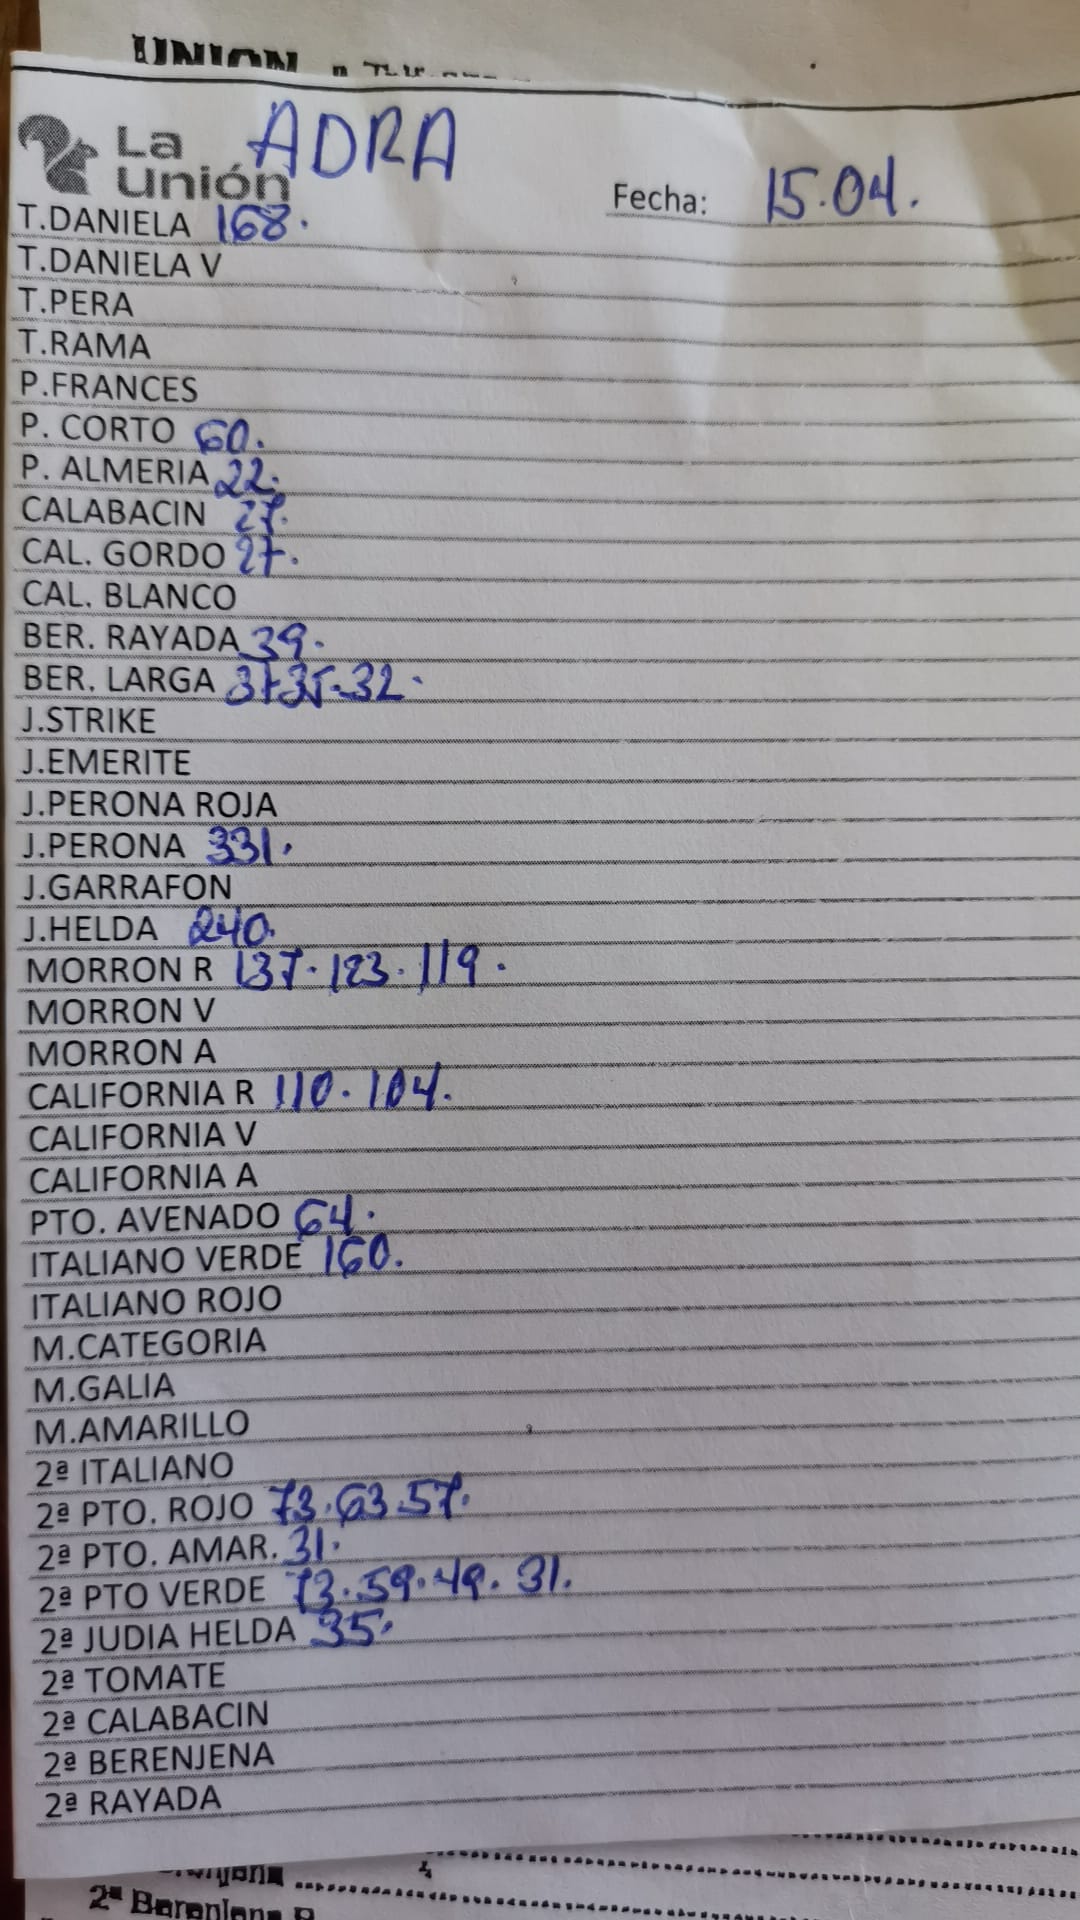 UNION
La Unión ADRA
Fecha: 15.04.
T.DANIELA 168.
T.DANIELA V
T.PERA
T.RAMA
P.FRANCES
P. CORTO 60.
P. ALMERIA 22.
CALABACIN 27.
CAL. GORDO 27.
CAL. BLANCO
BER. RAYADA 39.
BER. LARGA 37 35.32.
J.STRIKE
J.EMERITE
J.PERONA ROJA
J.PERONA 331.
J.GARRAFON
J.HELDA 240.
MORRON R 137.123.119.
MORRON V
MORRON A
CALIFORNIA R 110.104.
CALIFORNIA V
CALIFORNIA A
PTO. AVENADO 64.
ITALIANO VERDE 160.
ITALIANO ROJO
M.CATEGORIA
M.GALIA
M.AMARILLO
2ª ITALIANO
2ª PTO. ROJO 73.63.57.
2ª PTO. AMAR. 31.
2ª PTO VERDE 73.59.49.31.
2ª JUDIA HELDA 35.
2ª TOMATE
2ª CALABACIN
2ª BERENJENA
2ª RAYADA
2ª Berenjena R